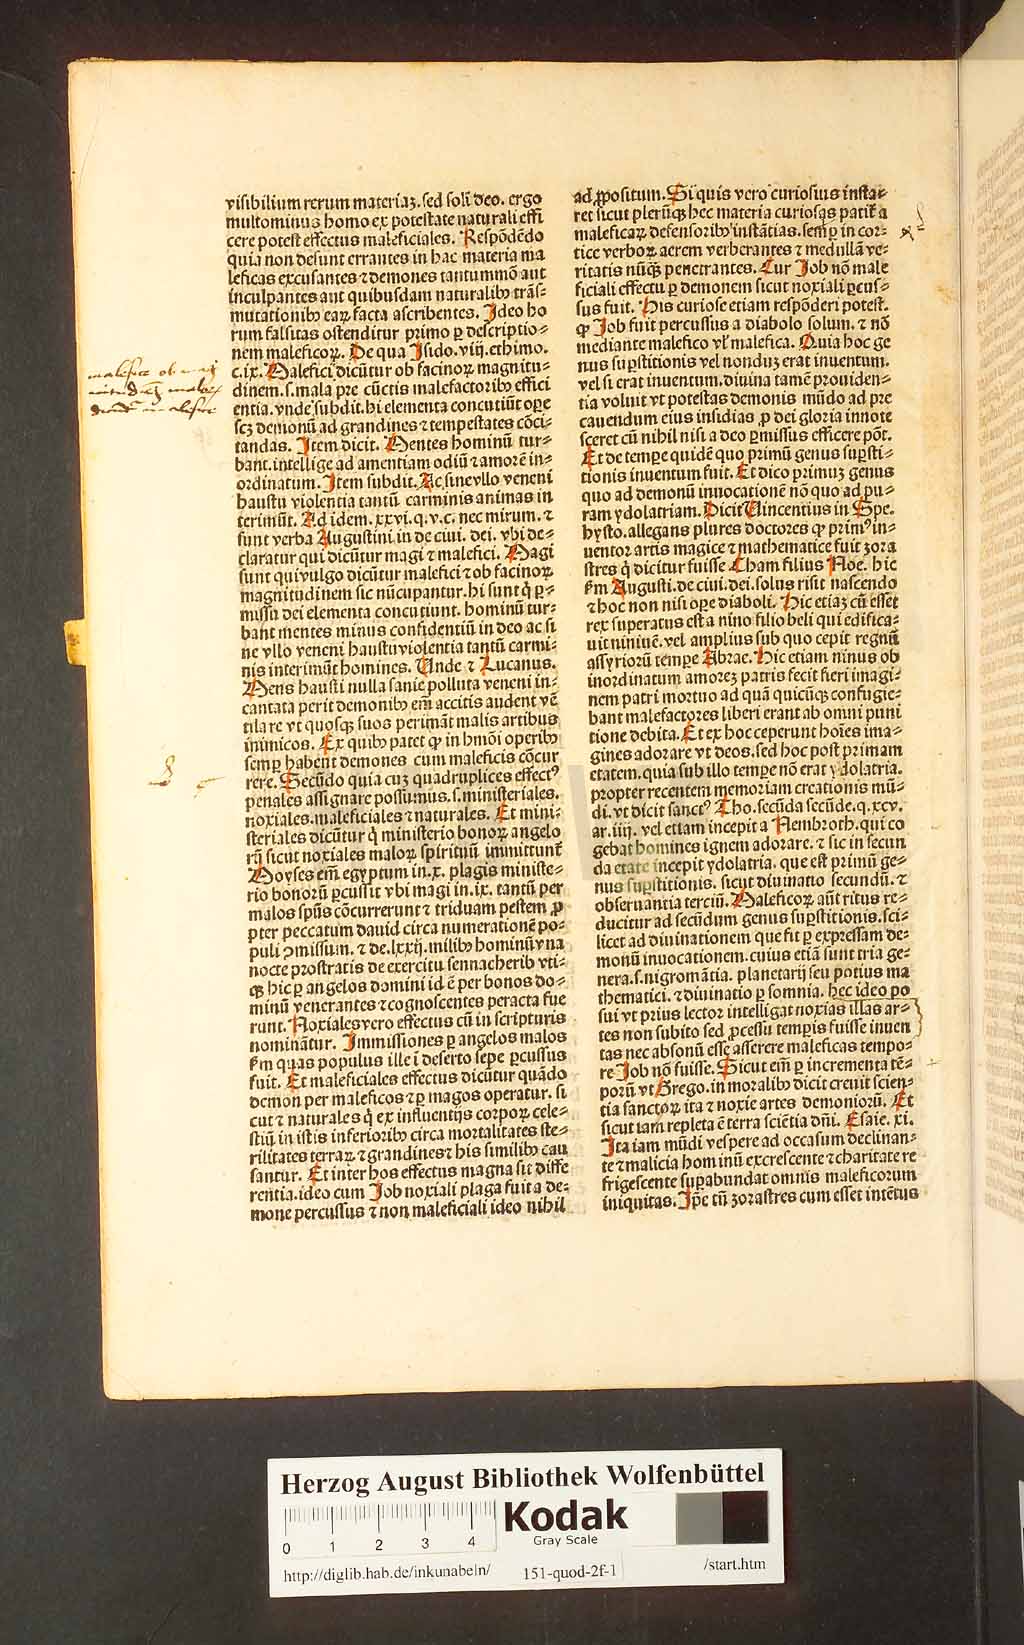 visibilium rerum materiaʒ. sed soli deo. ergo
multominus homo ex potestate naturali effi
cere potest effectus maleficiales. Respōdēdo
quia non desunt errantes in hac materia ma
leficas excusantes ⁊ demones tantummō aut
inculpantes aut quibusdam naturalibꝰ trās⸗
mutationibꝰ eaꝝ facta ascribentes. Ideo ho
rum falsitas ostenditur primo ꝑ descriptio⸗
nem maleficoꝝ. De qua Isido. viij. ethimo.
c. ix. Malefici dicūtur ob facinoꝝ magnitu⸗
dinem. s. mala pre cūctis malefactoribꝰ effici
entia. vnde subdit. hi elementa concutiūt ope
scʒ demonū ad grandines ⁊ tempestates cōci⸗
tandas. Item dicit. Mentes hominū tur⸗
bant. intellige ad amentiam odiū ⁊ amorē in⸗
ordinatum. Item subdit. Ac sine vllo veneni
haustu violentia tantū carminis animas in
terimūt. Ad idem. xxvi. q. v. c. nec mirum. ⁊
sunt verba Augustini. in de ciui. dei. vbi de⸗
claratur qui dicūtur magi ⁊ malefici. Magi
sunt qui vulgo dicūtur malefici ⁊ ob facinoꝝ
magnitudinem sic nūcupantur. hi sunt q̇ ꝑ⸗
missu dei elementa concutiunt. hominū tur⸗
bant mentes minus confidentiū in deo ac si
ne vllo veneni haustu violentia tantū carmi⸗
nis interimūt homines. Unde ⁊ Lucanus.
Mens hausti nulla sanie polluta veneni in⸗
cantata perit demonibꝰ em̄ accitis audent vē
tilare vt quosqʒ suos perimāt malis artibus
inimicos. Ex quibꝰ patet ꝙ in hmōi operibꝰ
semꝑ habent demones cum maleficis cōcur
rere. Secūdo quia cuʒ quadruplices effectꝰ
penales assignare possumus. s. ministeriales.
noxiales. maleficiales ⁊ naturales. Et mini⸗
steriales dicūtur q̇ ministerio bonoꝝ angelo
rū sicut noxiales maloꝝ spirituū immittunt̄
Moyses em̄ egyptum in. x. plagis ministe⸗
rio bonorū ꝑcussit vbi magi in. ix. tantū per
malos spūs cōcurrerunt ⁊ triduam pestem ꝓ
pter peccatum dauid circa numerationē po⸗
puli ꝯmissum. ⁊ de. lxxij. milibꝰ hominū vna
nocte prostratis de exercitu sennacherib vti⸗
qʒ hic ꝑ angelos domini id ē per bonos do⸗
minū venerantes ⁊ cognoscentes peracta fue
runt. Noxiales vero effectus cū in scripturis
nominātur. Immissiones ꝑ angelos malos
ẜm quas populus ille ī deserto sepe ꝑcussus
fuit. Et maleficiales effectus dicūtur quādo
demon per maleficos ⁊ ꝑ magos operatur. si
cut ⁊ naturales q̇ ex influentijs corpoꝝ cele⸗
stiū in istis inferioribꝰ circa mortalitates ste⸗
rilitates terraꝝ ⁊ grandines ⁊ his similibꝰ cau
santur. Et inter hos effectus magna sit diffe
rentia. ideo cum Job noxiali plaga fuit a de⸗
mone percussus ⁊ non maleficiali ideo nihil
ad ꝓpositum. Si quis vero curiosius insta⸗
ret sicut plerūqʒ hec materia curiosas patit̄ a
maleficaꝝ defensoribꝰ instātias. semꝑ in cor⸗
tice verboꝝ aerem verberantes ⁊ medullā ve⸗
ritatis nūqʒ penetrantes. Cur Job nō male
ficiali effectu ꝑ demonem sicut noxiali ꝑcus⸗
sus fuit. His curiose etiam respōderi potest.
ꝙ Job fuit percussus a diabolo solum. ⁊ nō
mediante malefico vl̓ malefica. Quia hoc ge
nus suꝑstitionis vel nonduʒ erat inuentum.
vel si erat inuentum. diuina tamē prouiden⸗
tia voluit vt potestas demonis mūdo ad pre
cauendum eius insidias ꝓ dei gloria innote
sceret cū nihil nisi a deo ꝑmissus efficere pōt.
Et de tempe quidē quo primū genus suꝑsti⸗
tionis inuentum fuit. Et dico primuʒ genus
quo ad demonū innocationē nō quo ad pu⸗
ram ydolatriam. Dicit Uincentius in Spe.
hysto. allegans plures doctores ꝙ primꝰ in⸗
uentor artis magice ⁊ mathematice fuit zora
stres q̇ dicitur fuisse Cham filius Noe. hic
ẜm Augusti. de ciui. dei. solus risit nascendo
⁊ hoc non nisi ope diaboli. Hic etiaʒ cū esset
rex superatus est a nino filio beli qui edifica⸗
uit niniuē. vel amplius sub quo cepit regnū
assyriorū tempe Abrae. Hic etiam ninus ob
inordinatum amoreʒ patris fecit fieri imagi⸗
nem patri mortuo ad quā quicūqʒ confugie⸗
bant malefactores liberi erant ab omni puni
tione debita. Et ex hoc ceperunt hoīes ima⸗
gines adorare vt deos. sed hoc post primam
etatem. quia sub illo tempe nō erat ydolatria.
propter recentem memoriam creationis mū⸗
di. vt dicit sanctꝰ Tho. secūda secūde. q. xcv.
ar. iiij. vel etiam incepit a Nembroth. qui co
gebat homines ignem adorare. ⁊ sic in secun
da etate incepit ydolatria. que est primū ge⸗
nus suꝑstitionis. sicut diuinatio secundū. ⁊
obseruantia terciū. Maleficoꝝ aūt ritus re⸗
ducitur ad secūdum genus suꝑstitionis. sci⸗
licet ad diuinationem que fit ꝑ expressam de⸗
monū inuocationem. cuius etiā sunt tria ge⸗
nera. s. nigromātia. planetarij seu potius ma
thematici. ⁊ diuinatio ꝑ somnia. hec ideo po
sui vt prius lector intelligat noxias illas ar⸗
tes non subito sed ꝓcessu tempis fuisse inuen
tas nec absonū esse asserere maleficas tempo⸗
re Job nō fuisse. Sicut em̄ ꝑ incrementa tē⸗
porū vt Grego. in moralibꝰ dicit creuit scien⸗
tia sanctoꝝ ita ⁊ noxie artes demoniorū. Et
sicut iam repleta ē terra sciētia dn̄i. Esaie. xi.
Ita iam mūdi vespere ad occasum declinan⸗
te ⁊ malicia hominū excrescente ⁊ charitate re
frigescente suꝑabundat omnis maleficorum
iniquitas. Ipe tn̄ zorastres cum esset intētus
Herzog August Bibliothek Wolfenbüttel
Kodak
Gray Scale
0 1 2 3 4
http://diglib.hab.de/inkunabeln/ 151-quod-2f-1 /start.htm